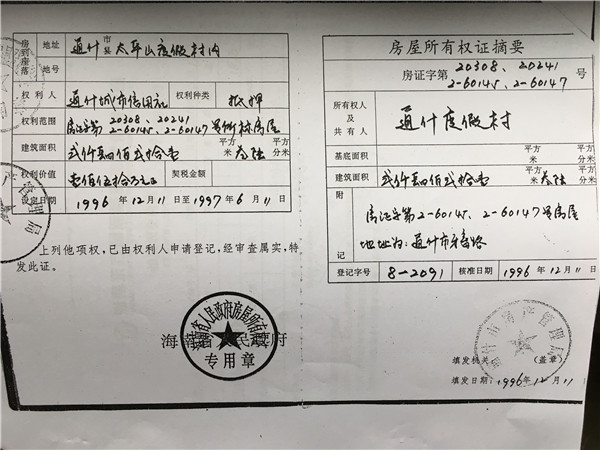 房屋座落
地址
通什
市
县
太平山度假村内
地号
权利人
通什城市信用社
权利种类
抵押
权利范围
房证字第20308、20241
2-60145、2-60147号所标房屋
建筑面积
贰仟肆佰贰拾壹
平方米
叁陆
平方分米
权利价值
壹佰伍拾万元正
契税金额
设定日期
1996年12月11日至1997年6月11日
上列他项权,已由权利人申请登记,经审查属实,特
发此证。
海南省人民政府
专用章
房屋所有权证摘要
房证字第
20308、20241
2-60145、2-60147
号
所有权人
及
共有人
通什度假村
基底面积
平方米
平方分米
建筑面积
贰仟肆佰贰拾壹
平方米
叁陆
平方分米
附记
房证字第2-60145、2-60147号房屋
地址为:通什市
路
登记字号
8-2091
核准日期
1996年12月11日
通什市房产管理局
填发机关
(盖章)
填发日期:1996年12月11